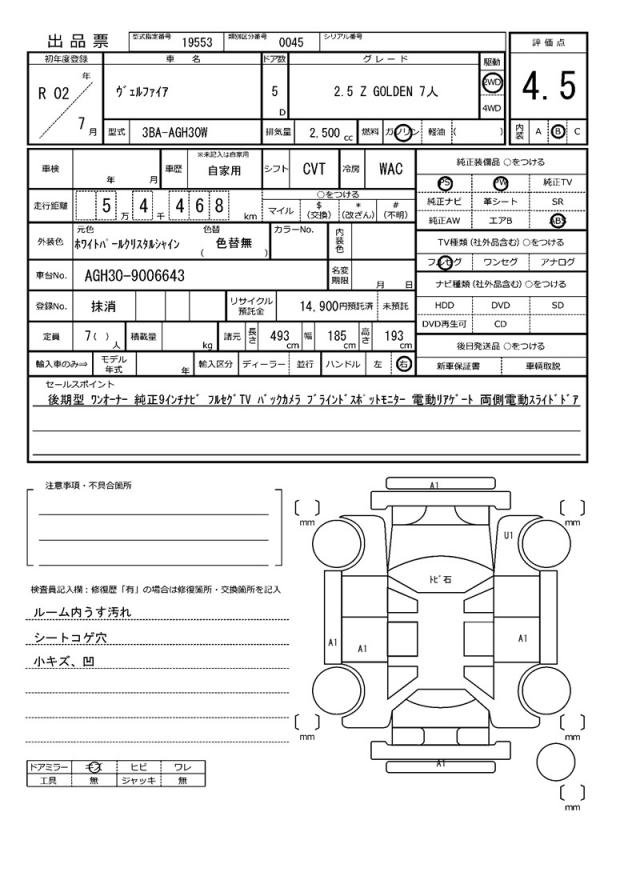 出品票 型式指定番号 19553 類別区分番号 0045 シリアル番号
初年度登録 車名 ドア数 グレード 駆動 評価点
R 02 年 7 月 ヴェルファイア 5 D 2.5 Z GOLDEN 7人 2WD 4WD 4.5
型式 3BA-AGH30W 排気量 2,500 cc 燃料 ガソリン 軽油 ( ) 内装 A B C
車検 年 月 車歴 ※未記入は自家用 自家用 シフト CVT 冷房 WAC 純正装備品 ○をつける
PS PW 純正TV
走行距離 5 万 4 千 4 6 8 km ○をつける マイル $(交換) *(改ざん) #(不明) 純正ナビ 革シート SR
純正AW エアB ABS
外装色 元色 ホワイトパールクリスタルシャイン 色替 ( 色替無 ) カラーNo. 内装色 TV種類(社外品含む)○をつける
フルセグ ワンセグ アナログ
車台No. AGH30-9006643 名変期限 月 日 ナビ種類(社外品含む)○をつける
登録No. 抹消 リサイクル預託金 14,900円預託済 未預託 HDD DVD SD
DVD再生可 CD
定員 7( )人 積載量 kg 諸元 長さ 493 cm 幅 185 cm 高さ 193 cm 後日発送品 ○をつける
輸入車のみ⇒ モデル年式 年 輸入区分 ディーラー 並行 ハンドル 左 右 新車保証書 車輌取説
セールスポイント
後期型 ワンオーナー 純正9インチナビ フルセグTV バックカメラ ブラインドスポットモニター 電動リアゲート 両側電動スライドドア
注意事項・不具合箇所
検査員記入欄:修復歴「有」の場合は修復箇所・交換箇所を記入
ルーム内うす汚れ
シートコゲ穴
小キズ、凹
ドアミラー キズ ヒビ ワレ
工具 無 ジャッキ 無
A1
[ ] mm
[ ] mm
U1
トビ石
A1
A1
A1
[ ] mm
[ ] mm
A1
[ ] mm